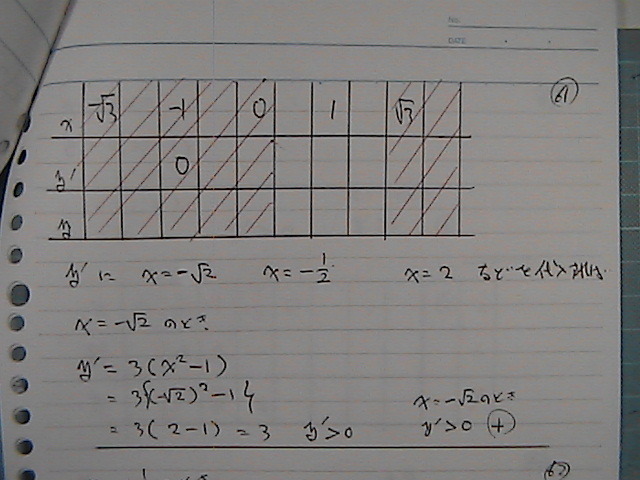 No.
DATE
61
x -√3 -1 0 1 √3
y' 0
y
y' に x=-√2 x=-1/2 x=2 などを代入すれば
x=-√2 のとき
y'=3(x²-1)
=3{(-√2)²-1}
=3(2-1)=3 y'>0
x=-√2のとき
y'>0 (+)